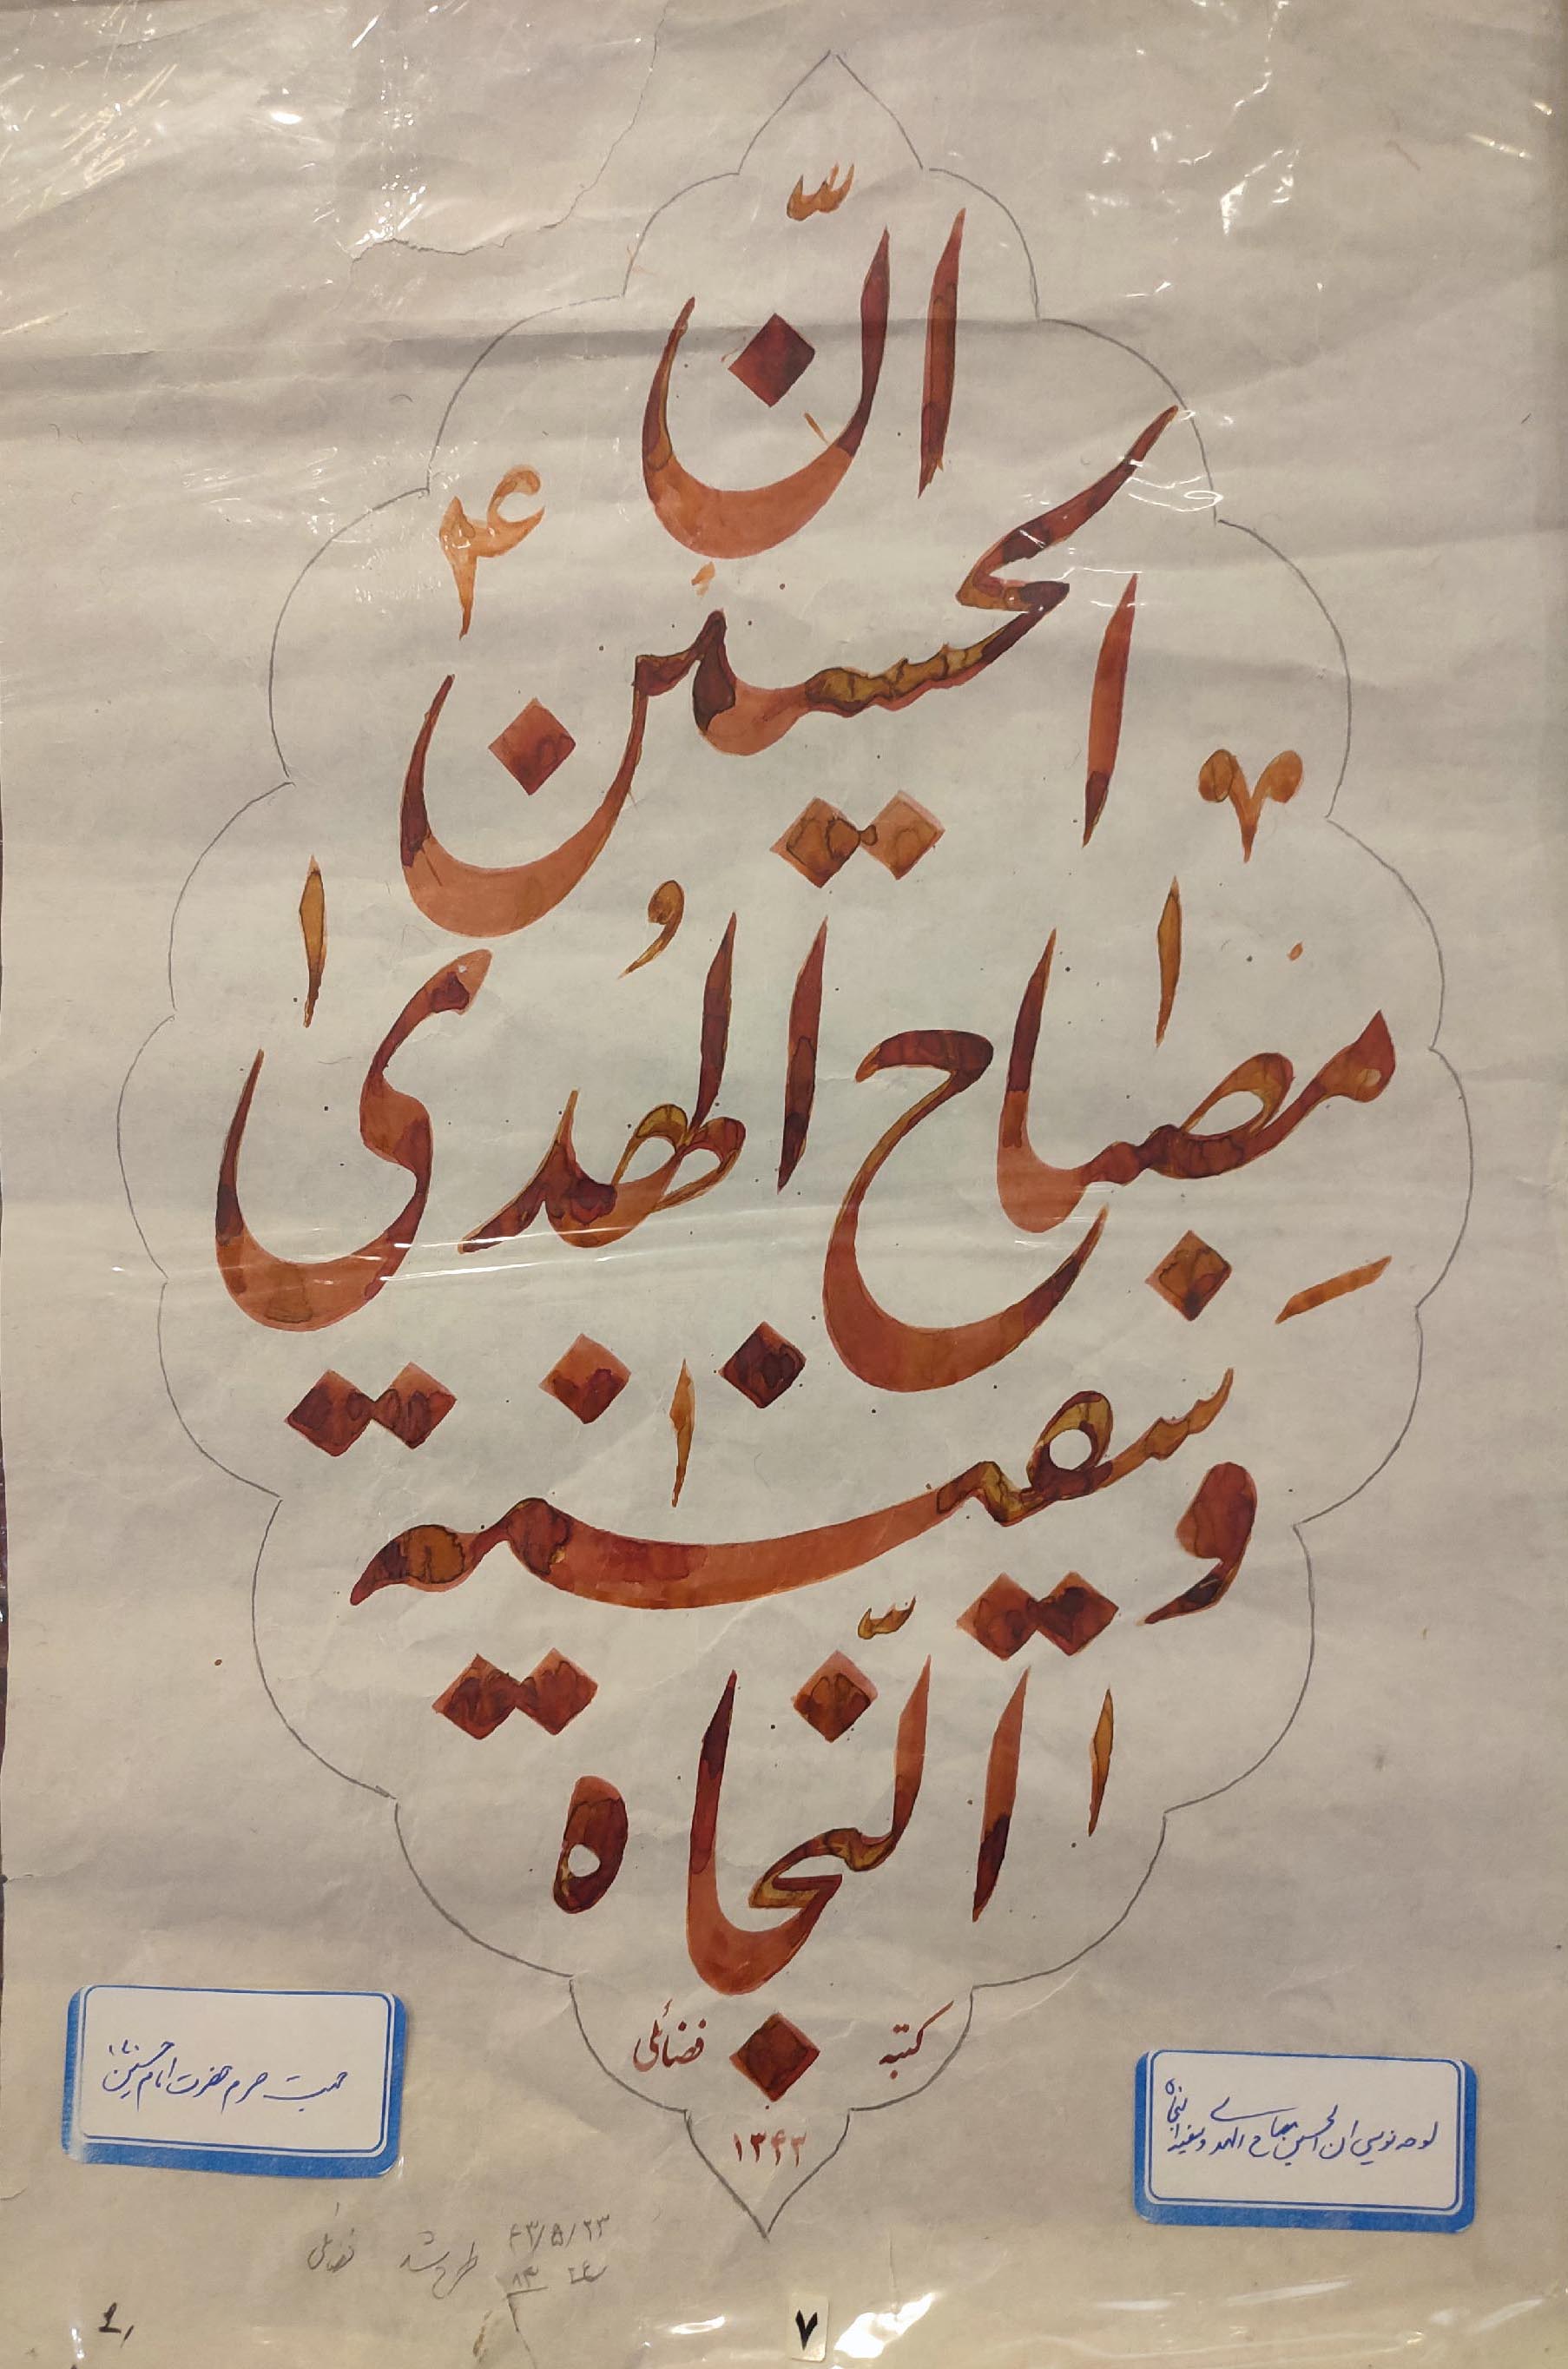 انّ
الحسین ع
مِصباح الهُدیٰ
و سفینة
النّجاة
کتبه فضائلی
۱۳۴۳
جهت حرم حضرت امام حسین
لوحه نویسی ان الحسین مصباح الهدی و سفینة النجاة
۴۳/۵/۲۳ طرح شد فضائلی
۷